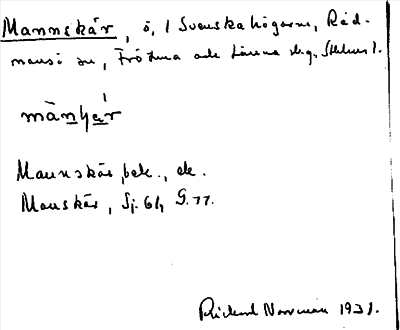 Mannskär, ö, i Svenska högarna, Råd-
mansö sn, Frötuna och Länna skg. Sthlms l.
mànʃæ̀r
Mannskär, bek., ek.
Manskär, Sj. 61, G. 77.
Rickard Norrman 1931.